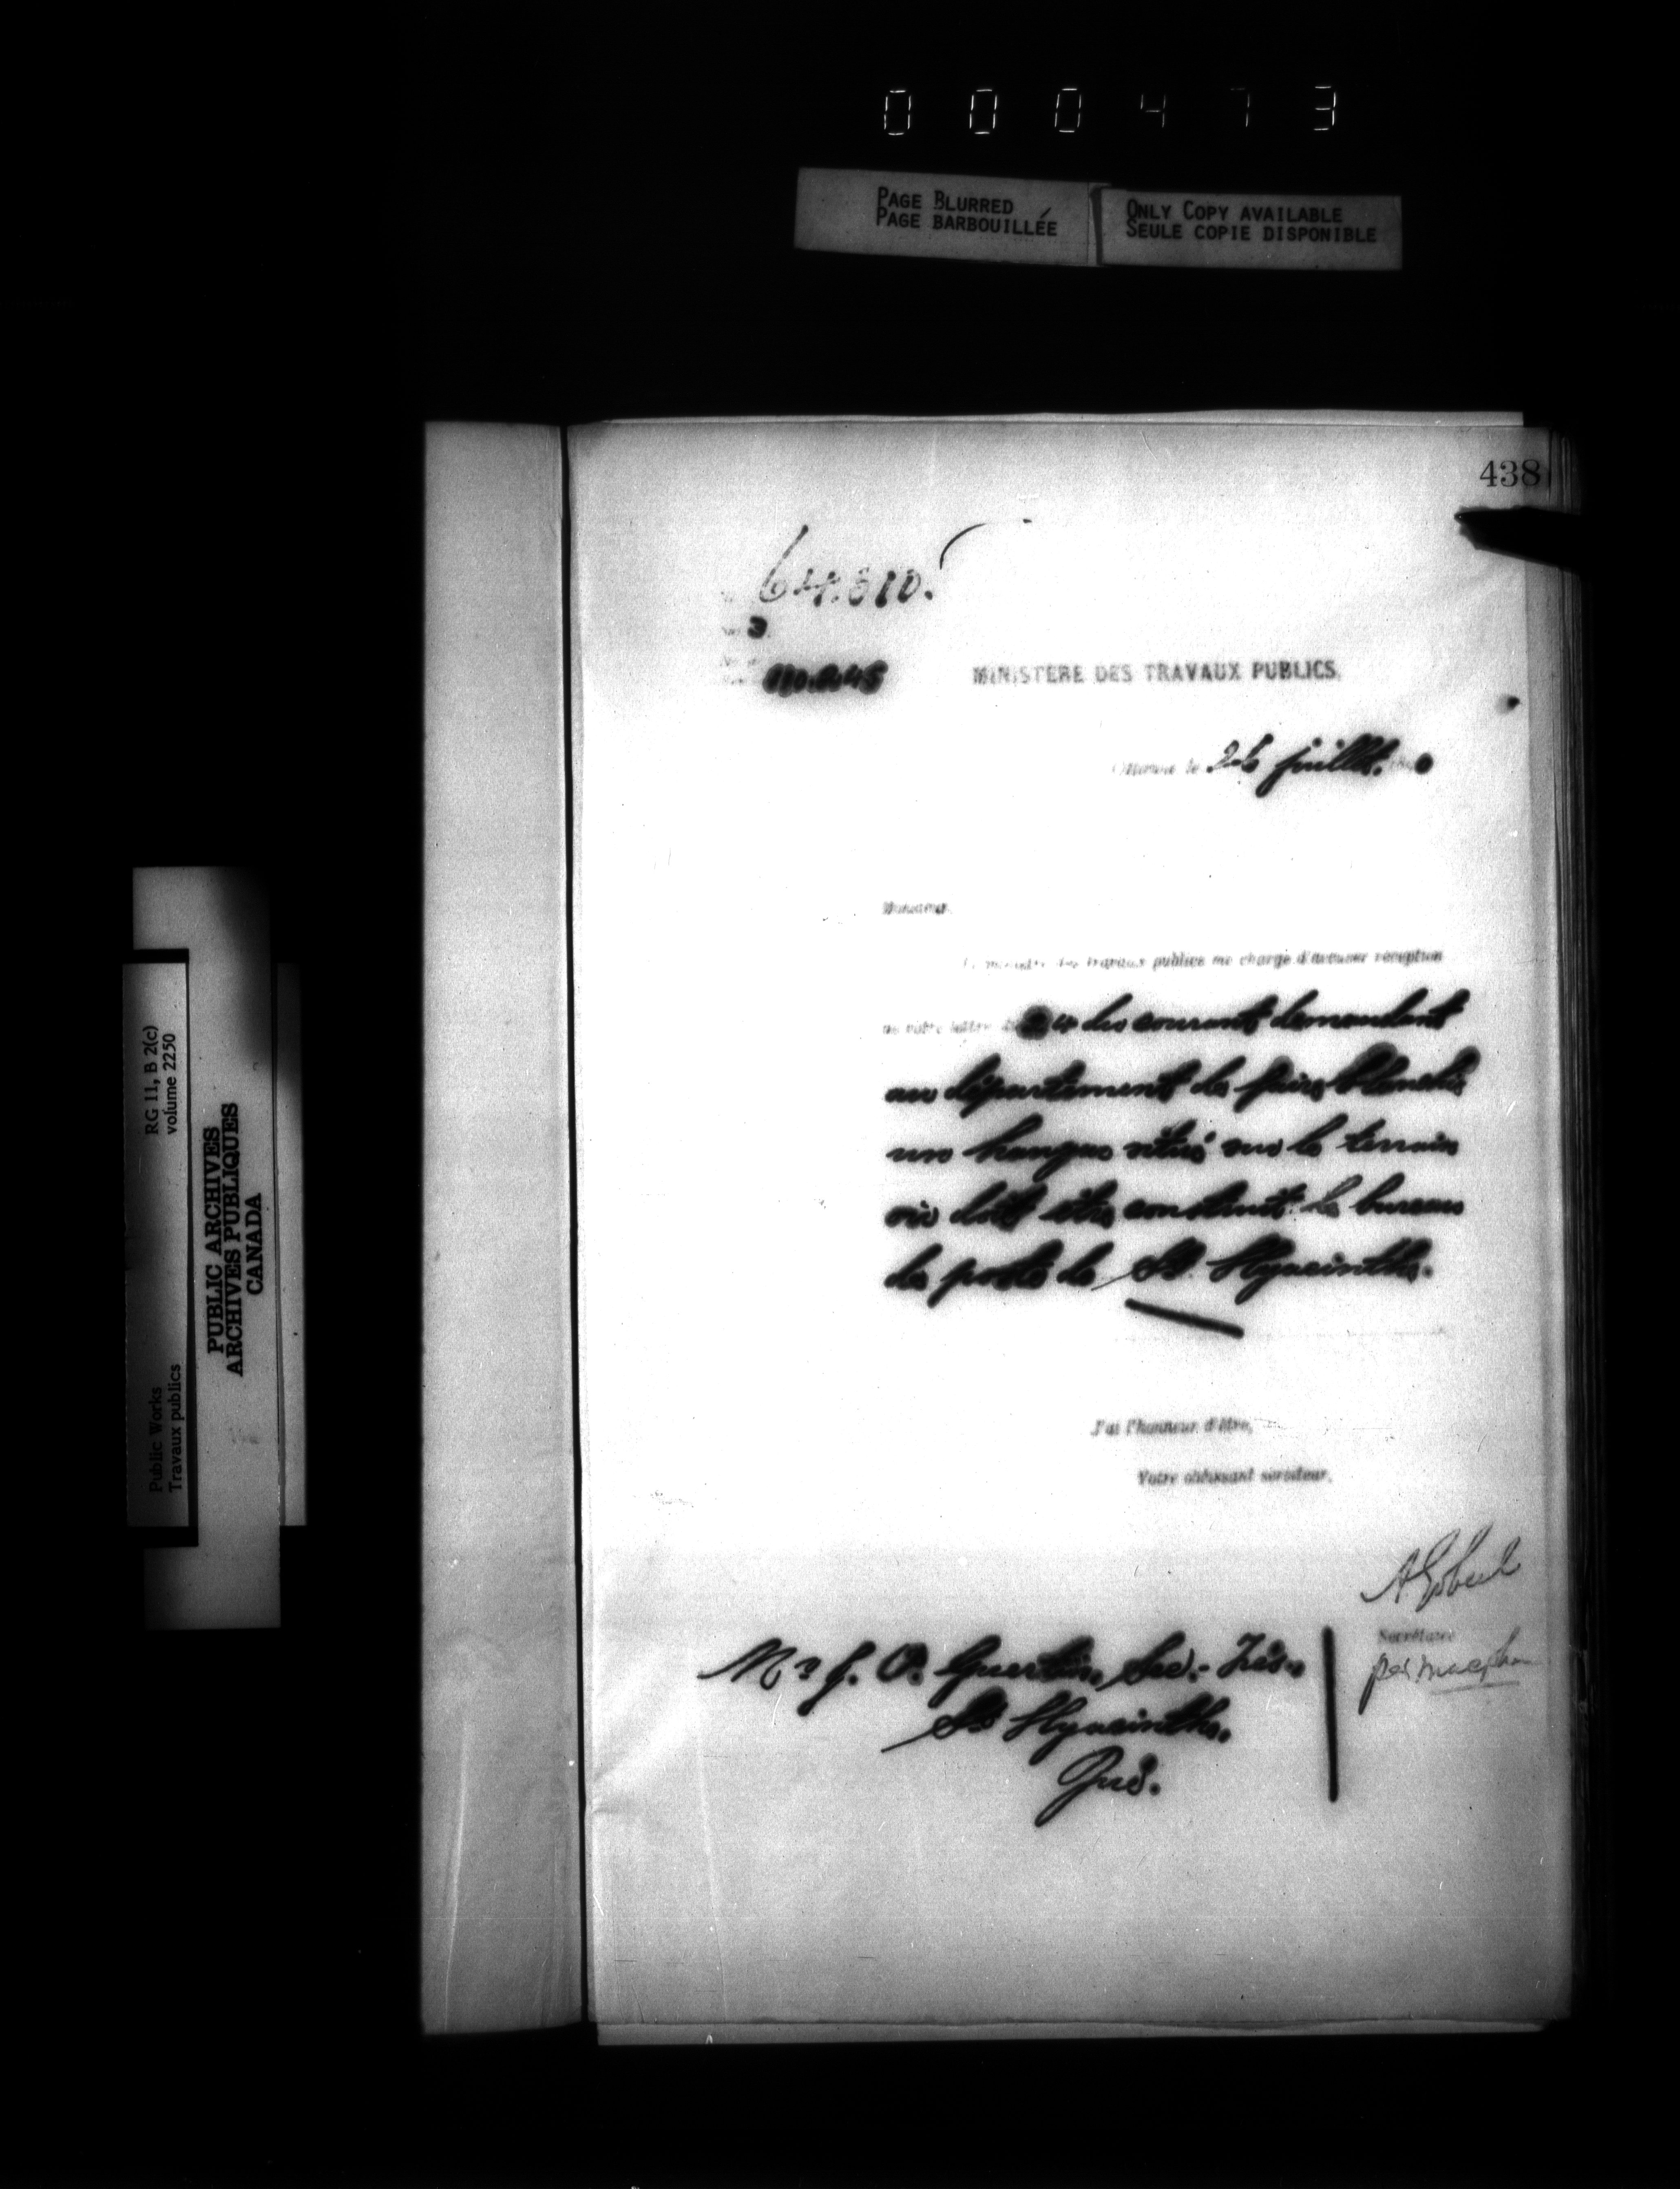 000473
PAGE BLURRED
PAGE BARBOUILLÉE
ONLY COPY AVAILABLE
SEULE COPIE DISPONIBLE
438
64.810.
3
MINISTÈRE DES TRAVAUX PUBLICS.
Ottawa le juillet. 0
Monsieur,
Le ministre des travaux publics me charge d'accuser réception
de votre lettre du courant demandant
au département de faire blanchir
un hangar situé sur le terrain
où doit être construit le bureau
de poste de St. Hyacinthe.
J'ai l'honneur d'être,
Votre obéissant serviteur,
A. Gobeil
Secrétaire
per
Mr J. O. Guertin, Sec.-Trés.
St Hyacinthe.
Qué.
RG 11, B 2(c)
volume 2250
Public Works
Travaux publics
PUBLIC ARCHIVES
ARCHIVES PUBLIQUES
CANADA